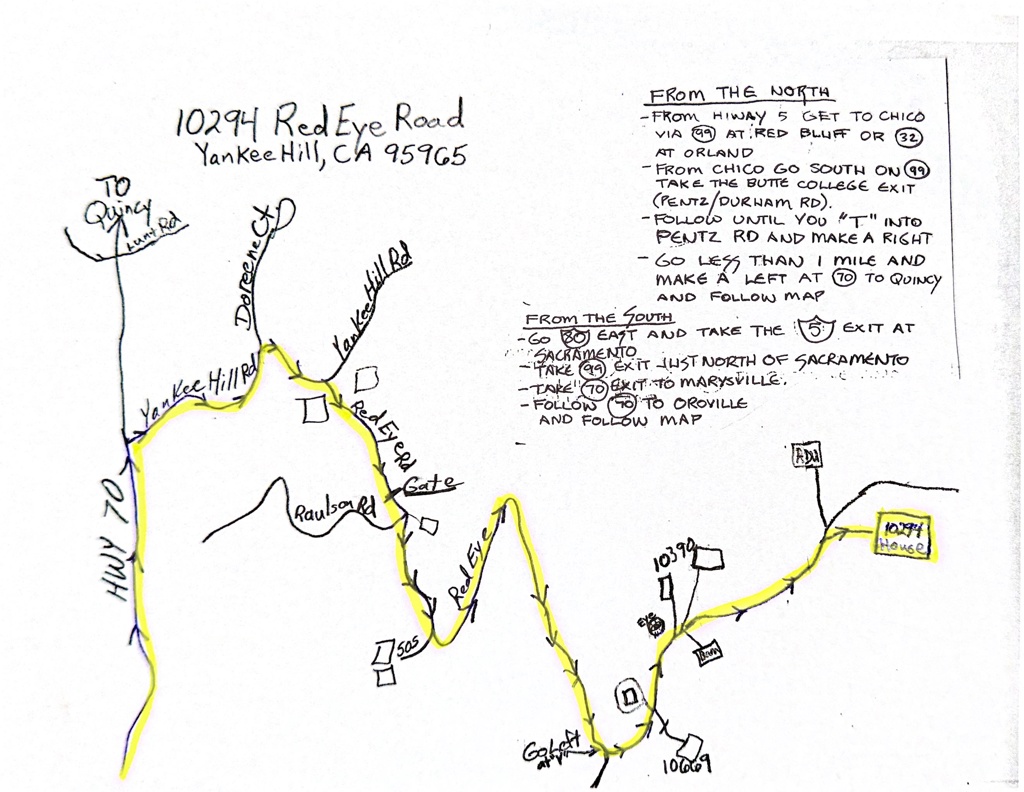 10294 Red Eye Road
Yankee Hill, CA 95965
FROM THE NORTH
- FROM HIWAY 5 GET TO CHICO
VIA 99 AT RED BLUFF OR 32
AT ORLAND
- FROM CHICO GO SOUTH ON 99
TAKE THE BUTTE COLLEGE EXIT
(PENTZ/DURHAM RD).
- FOLLOW UNTIL YOU "T" INTO
PENTZ RD AND MAKE A RIGHT
- GO LESS THAN 1 MILE AND
MAKE A LEFT AT 70 TO QUINCY
AND FOLLOW MAP
FROM THE SOUTH
- GO 80 EAST AND TAKE THE 5 EXIT AT
SACRAMENTO
- TAKE 99 EXIT JUST NORTH OF SACRAMENTO
- TAKE 70 EXIT TO MARYSVILLE.
- FOLLOW 70 TO OROVILLE
AND FOLLOW MAP
TO
Quincy
Lunt Rd
Doreene Ct
Yankee Hill Rd
Yankee Hill Rd
Red Eye Rd
Gate
Raulson Rd
HWY 70
Red Eye
505
ADU
10294
House
10390
EYE
Barn
Go Left
at "Y"
10669